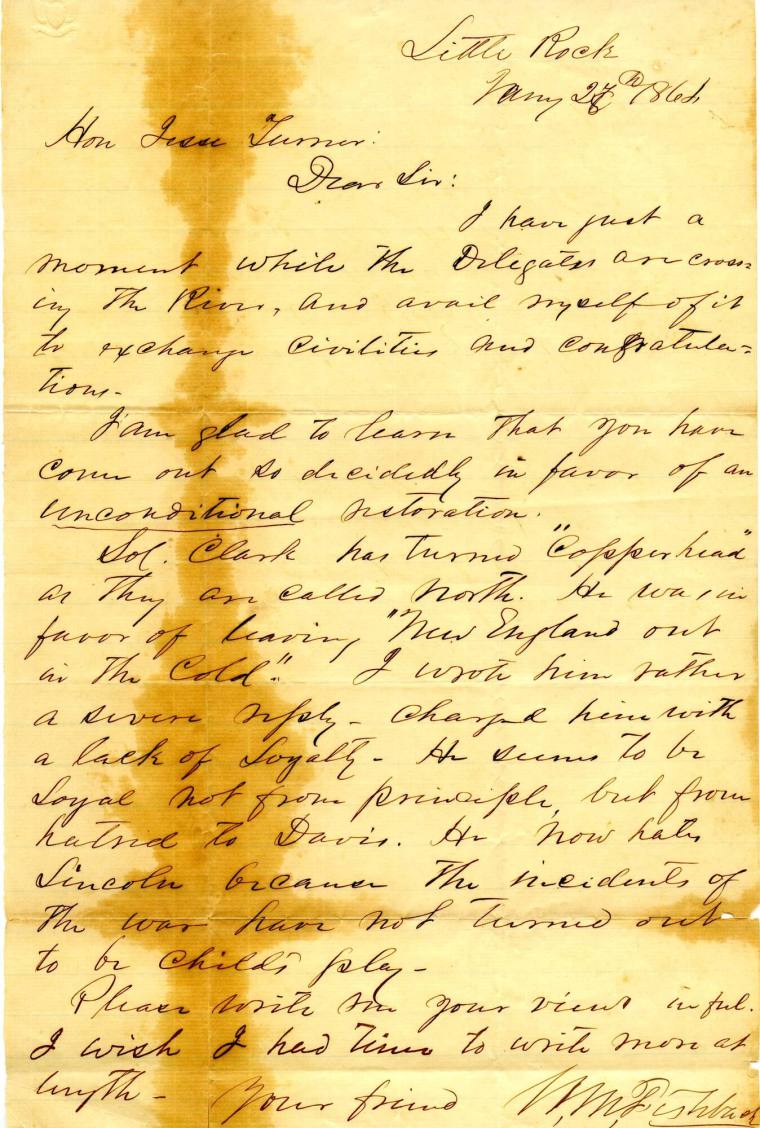 Little Rock
Jany 27th 1864
Hon Jesse Turner:
Dear Sir:
I have just a
moment while the Delegates are cross=
ing the River, and avail myself of it
to exchange civilities and congratula=
tions.
I am glad to learn that you have
come out so decidedly in favor of an
unconditional restoration.
Sol. Clark has turned "Copperhead"
as they are called North. He was in
favor of leaving "New England out
in the Cold". I wrote him rather
a severe reply - charged him with
a lack of Loyalty - He seems to be
Loyal not from principle, but from
hatred to Davis. He now hates
Lincoln because the incidents of
the war have not turned out
to be child's play -
Please write me your views in ful.
I wish I had time to write more at
length - Your friend W. M. Fishback